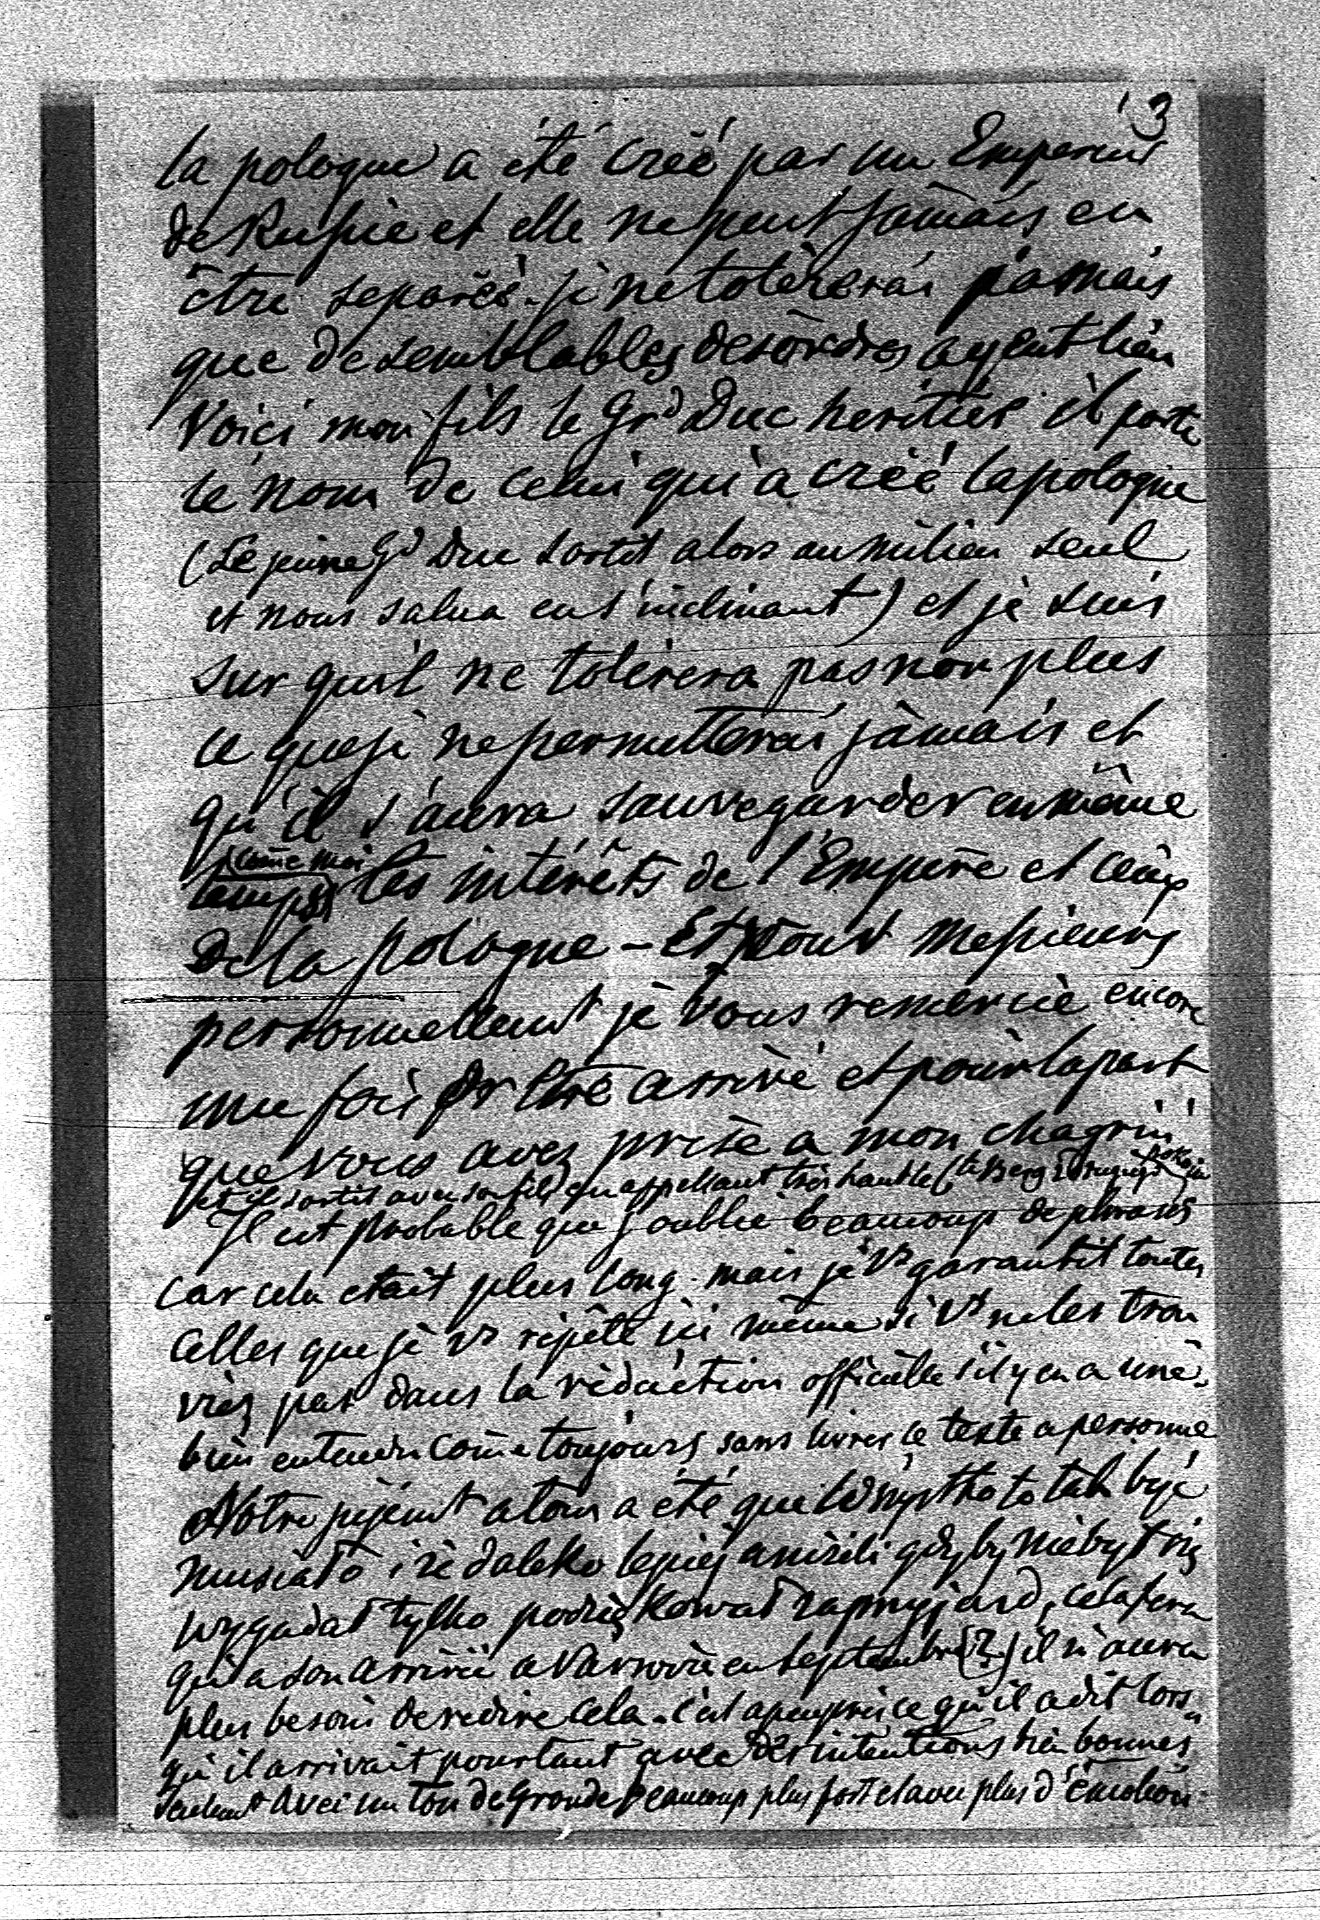 3
la pologne a été créé par un Empereur
de Russie et elle ne peut jamais en
être separèe. je ne tolèrerai jamais
que de semblables desordres ayent lieu
Voici mon fils le Grd Duc heritier il porte
le nom de celui qui a créé la pologne
(Le jeune Gd Duc sortit alors au milieu seul
et nous salua en s'inclinant) et je suis
sur qu'il ne tolèrera pas non plus
ce que je ne permetterai jamais et
qu'il s'aura sauvegarder en même
come moi
temps les intérêts de l'Empire et ceux
de la pologne – Et vous Messieurs
personnellement je vous remercie encore
une fois pr être arrivè et pour la part
que vous avez prise a mon chagrin
et il sortit avec son fils en appellant très haut le Cte Berg
Il est probable que j'oublie beaucoup de phrases
car cela etait plus long. mais je vs garantit toutes
celles que je vs répète ici même si vs ne les trou
viez pas dans la rèdaction officielle s'il y en a une,
bien entendu come toujours sans livrer ce texte a personne
Notre jugement a tous a été que wszystko to tak być
musiało i że daleko lepiej aniżeli gdyby nie był się
wygadał tylko podziękował za przyjazd, cela fera
qu'a son arrivée a Varsovie en Septembre (?) il n'aura
plus besoin de redire cela – c'est a peu près ce qu'il a dit lors
qu'il arrivait pourtant avec des intentions bien bonnes
seulement avec un ton de gronde beaucoup plus fort et avec plus d'émotion.